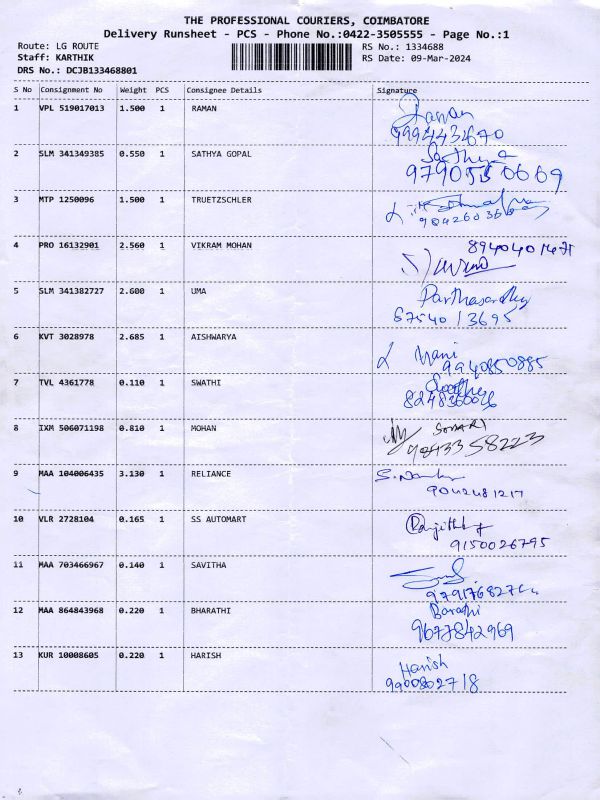 THE PROFESSIONAL COURIERS, COIMBATORE
Delivery Runsheet - PCS - Phone No.:0422-3505555 - Page No.:1
Route: LG ROUTE RS No.: 1334688
Staff: KARTHIK RS Date: 09-Mar-2024
DRS No.: DCJB133468801
S No Consignment No Weight PCS Consignee Details Signature
1 VPL 519017013 1.500 1 RAMAN Raman
9994432670
2 SLM 341349385 0.550 1 SATHYA GOPAL Sathya
3 MTP 1250096 1.500 1 TRUETZSCHLER
4 PRO 16132901 2.560 1 VIKRAM MOHAN
5 SLM 341382727 2.600 1 UMA Parthasarathy
6 KVT 3028978 2.685 1 AISHWARYA Mani
9940850885
7 TVL 4361778 0.110 1 SWATHI Swathy
8 IXM 506071198 0.810 1 MOHAN
9843358223
9 MAA 104006435 3.130 1 RELIANCE
9042481217
10 VLR 2728104 0.165 1 SS AUTOMART Ranjith
9150026795
11 MAA 703466967 0.140 1 SAVITHA
12 MAA 864843968 0.220 1 BHARATHI Barathi
9677842969
13 KUR 10008605 0.220 1 HARISH Harish
9900802718